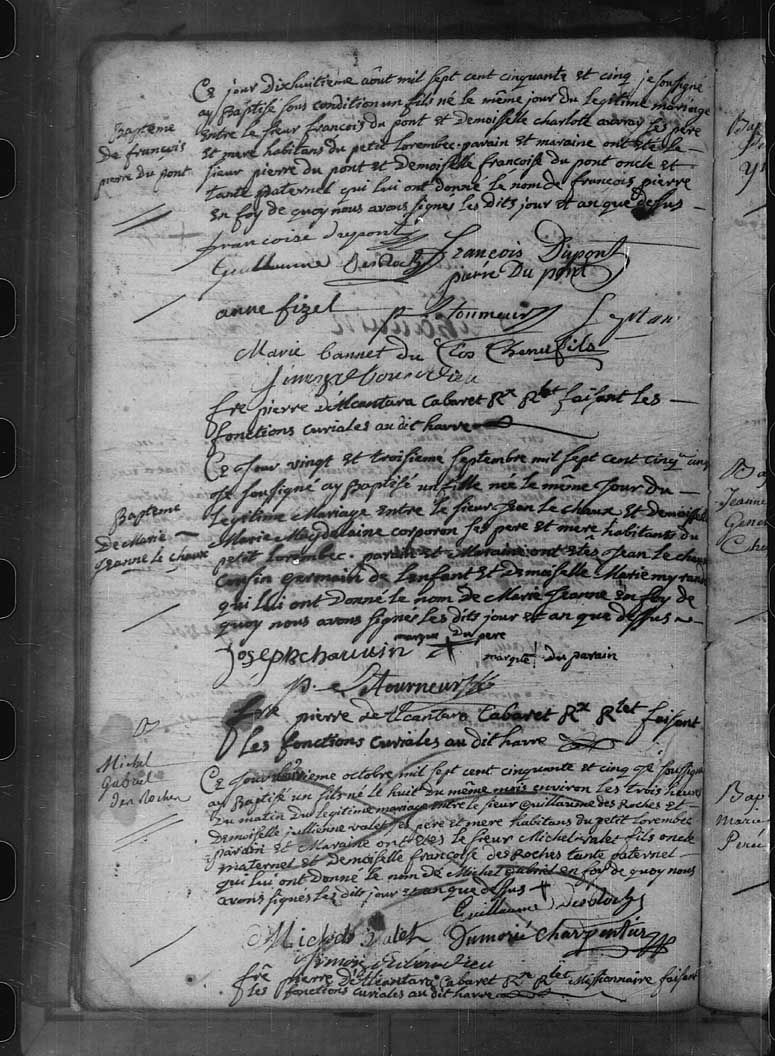 Ce jour dixhuitieme aôut mil sept cent cinquante et cinq je soussigné
ay Baptisé sous condition un fils né le même jour du legitime mariage
Bapteme
De françois
pierre du pont
Entre le sieur francois du pont et Demoiselle charlote ses pere
et mere habitans du petit Lorembec. parain et maraine ont etés le
sieur pierre du pont et demoiselle francoise du pont oncle et
tante paternel qui lui ont donné le nom de francois pierre
en foy de quoy nous avons signes les dits jour et an que dessus
francoise dupont
francois Dupont
Guillaume Desroch
pierre Du pont
anne fizel
Marie Cannet du Clos
fre pierre d'Alcantara Cabaret Rx Rlet faisant les
fonctions curiales au dit havre
Ce jour vingt et troisieme Septembre mil sept cent cinqte cinq
Je soussigné ay Baptisé un fille née le même jour du
Bapteme
De Marie
Jeanne le chaux
Legitime Mariage entre le sieur Jean Le chaux et demoiselle
Marie Magdelaine corporon ses pere et mere habitants du
petit Lorembec. parain et Maraine ont etês Jean le chaux
cousin germain de l'enfant et demoiselle Marie
qui lui ont Donné le nom de Marie Jeanne en foy de
quoy nous avons signés les dits jour et an que dessus
Joseph chauuin marque du pere
marque du parain
p. Le Tourneur
fre pierre de Alcantara Cabaret Rx Rlet faisant
Les fonctions curiales au dit havre
Michel
Gabriel
des Roches
Ce jour octobre mil sept cent cinquante et cinq je soussigné
ay Baptisé un fils né le huit du même mois environ les trois heures
Du matin Du legitime mariage entre le sieur Guillaume des Roches et
Demoiselle jullienne valet ses pere et mere habitans du petit Lorembec
parain et Maraine ont etes le sieur Michel valet fils oncle
maternel et Demoiselle francoise des Roches tante paternel
qui lui ont donné le nom de Michel Gabriel en foy de quoy nous
avons signes les dits jour et an que dessus
Guillaume Desroch
Michel valet Dumorié charpentier
frê pierre D'Alcantara Cabaret Rx Rlet Missionnaire faisant
les fonctions curiales au dit havre